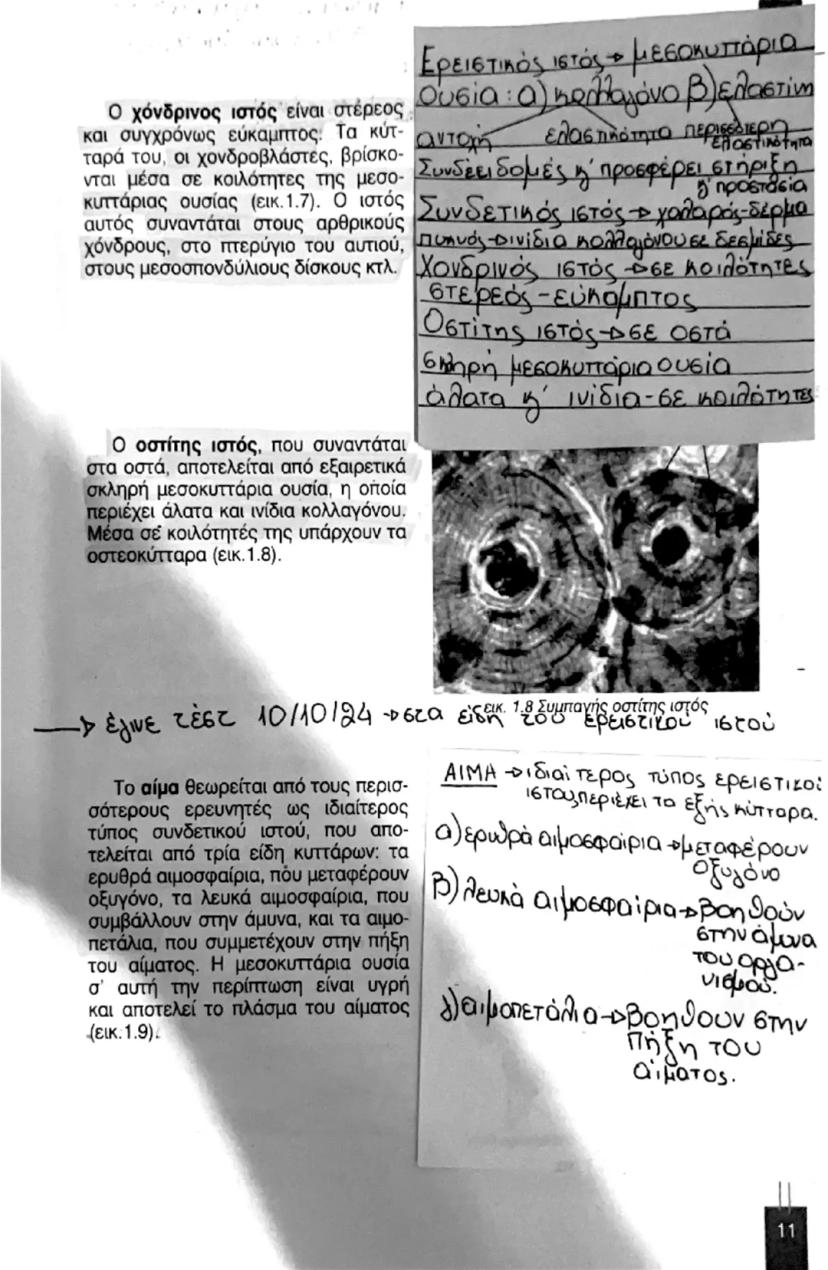 Ο χόνδρινος ιστός είναι στέρεος
και συγχρόνως εύκαμπτος. Τα κύτ-
ταρά του, οι χονδροβλάστες, βρίσκο-
νται μέσα σε κοιλότητες της μεσο-
κυττάριας ουσίας (εικ.1.7). Ο ιστός
αυτός συναντάται στους αρθρικούς
χόνδρους, στο πτερύγιο του αυτιού,
στους μεσοσπονδύλιους δίσκους κτλ.
Ερειστικός ιστός→ μεσοκυττάρια
ουσία: α) κολλαγόνο β) ελαστίνη
αντοχή ελαστικότητα περισσότερη
ελαστικότητα
Συνδέει δομές κ' προσφέρει στήριξη
κ' προστασία
Συνδετικός ιστός→ χαλαρός-δέρμα
πυκνός→ινίδια κολλαγόνου σε δεσμίδες
Χονδρινός ιστός →σε κοιλότητες
στερεός-εύκαμπτος
Οστίτης ιστός→σε οστά
σκληρή μεσοκυττάρια ουσία
άλατα κ' ινίδια-σε κοιλότητες
Ο οστίτης ιστός, που συναντάται
στα οστά, αποτελείται από εξαιρετικά
σκληρή μεσοκυττάρια ουσία, η οποία
περιέχει άλατα και ινίδια κολλαγόνου.
Μέσα σε κοιλότητές της υπάρχουν τα
οστεοκύτταρα (εικ.1.8).
εικ. 1.8 Συμπαγής οστίτης ιστός
→ έγινε τέστ 10/10/24 →στα είδη του ερειστικού ιστού
Το αίμα θεωρείται από τους περισ-
σότερους ερευνητές ως ιδιαίτερος
τύπος συνδετικού ιστού, που απο-
τελείται από τρία είδη κυττάρων: τα
ερυθρά αιμοσφαίρια, που μεταφέρουν
οξυγόνο, τα λευκά αιμοσφαίρια, που
συμβάλλουν στην άμυνα, και τα αιμο-
πετάλια, που συμμετέχουν στην πήξη
του αίματος. Η μεσοκυττάρια ουσία
σ' αυτή την περίπτωση είναι υγρή
και αποτελεί το πλάσμα του αίματος
(εικ.1.9).
ΑΙΜΑ →ιδιαίτερος τύπος ερειστικού
ιστού, περιέχει τα εξής κύτταρα.
α) ερυθρά αιμοσφαίρια→μεταφέρουν
οξυγόνο
β) λευκά αιμοσφαίρια→βοηθούν
στην άμυνα
του οργα-
νισμού.
γ) αιμοπετάλια→βοηθούν στην
πήξη του
αίματος.
11